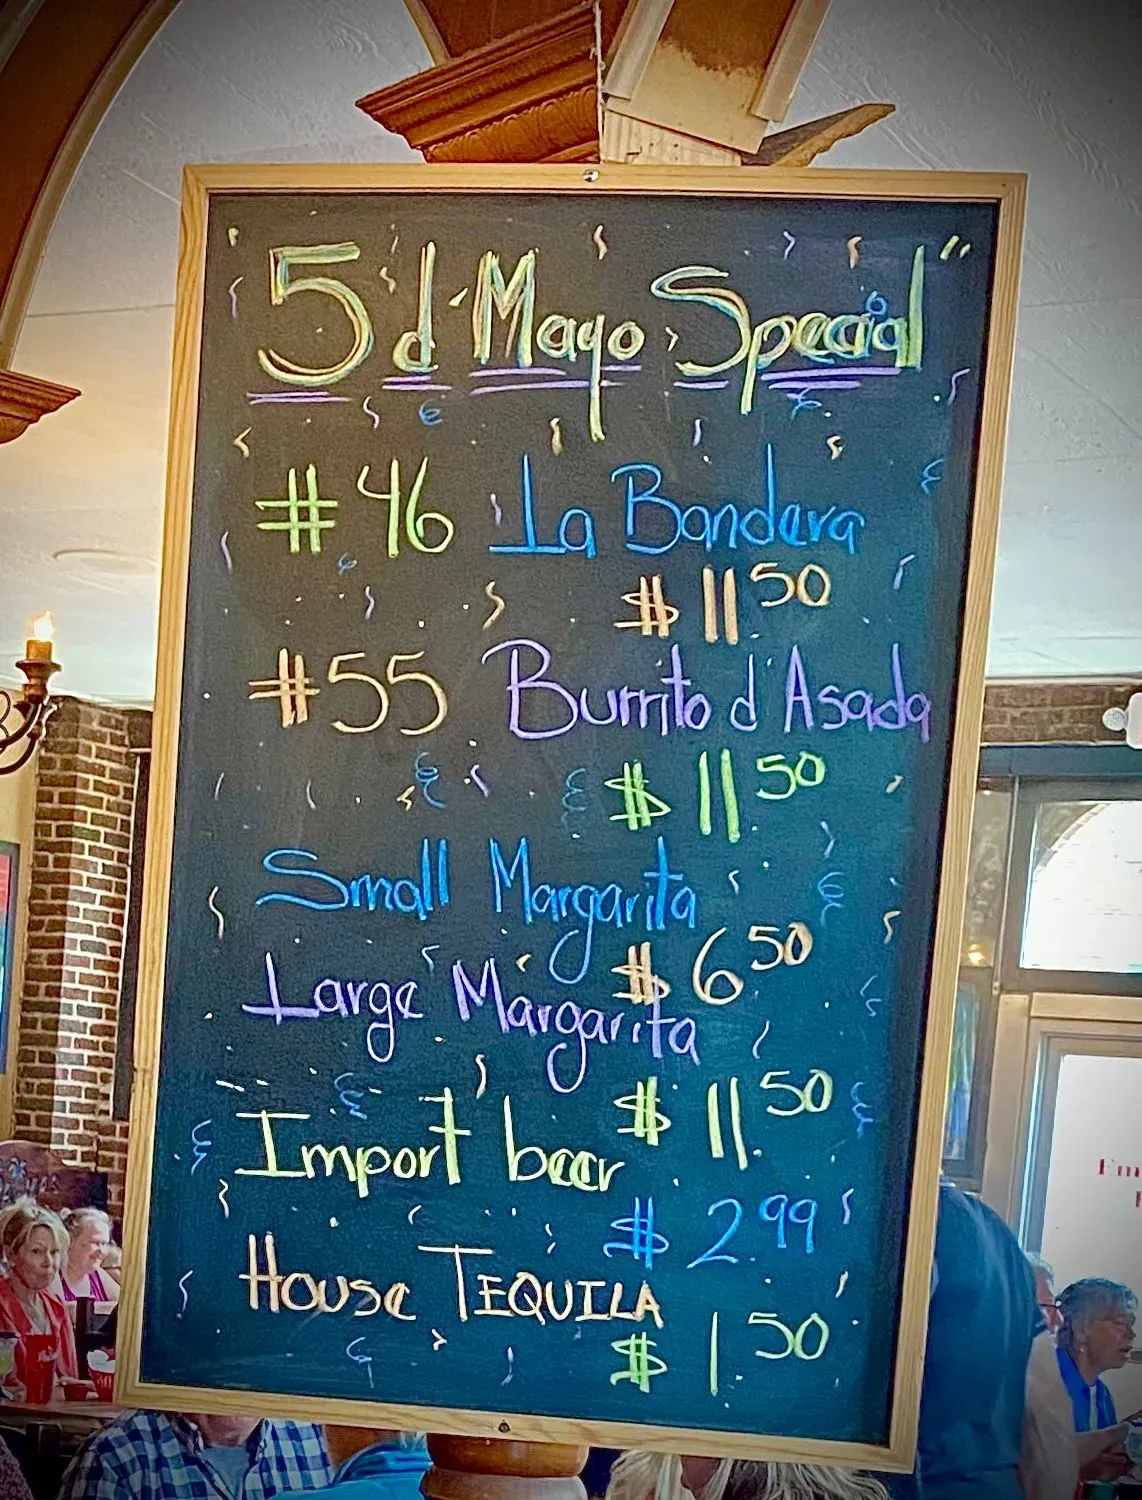 "5 d' Mayo Special"
#46 La Bandera
$ 11 50
#55 Burrito d'Asada
$ 11 50
Small Margarita
$ 6 50
Large Margarita
$ 11 50
Import beer
$ 2.99
House TEQUILA
$ 1 50